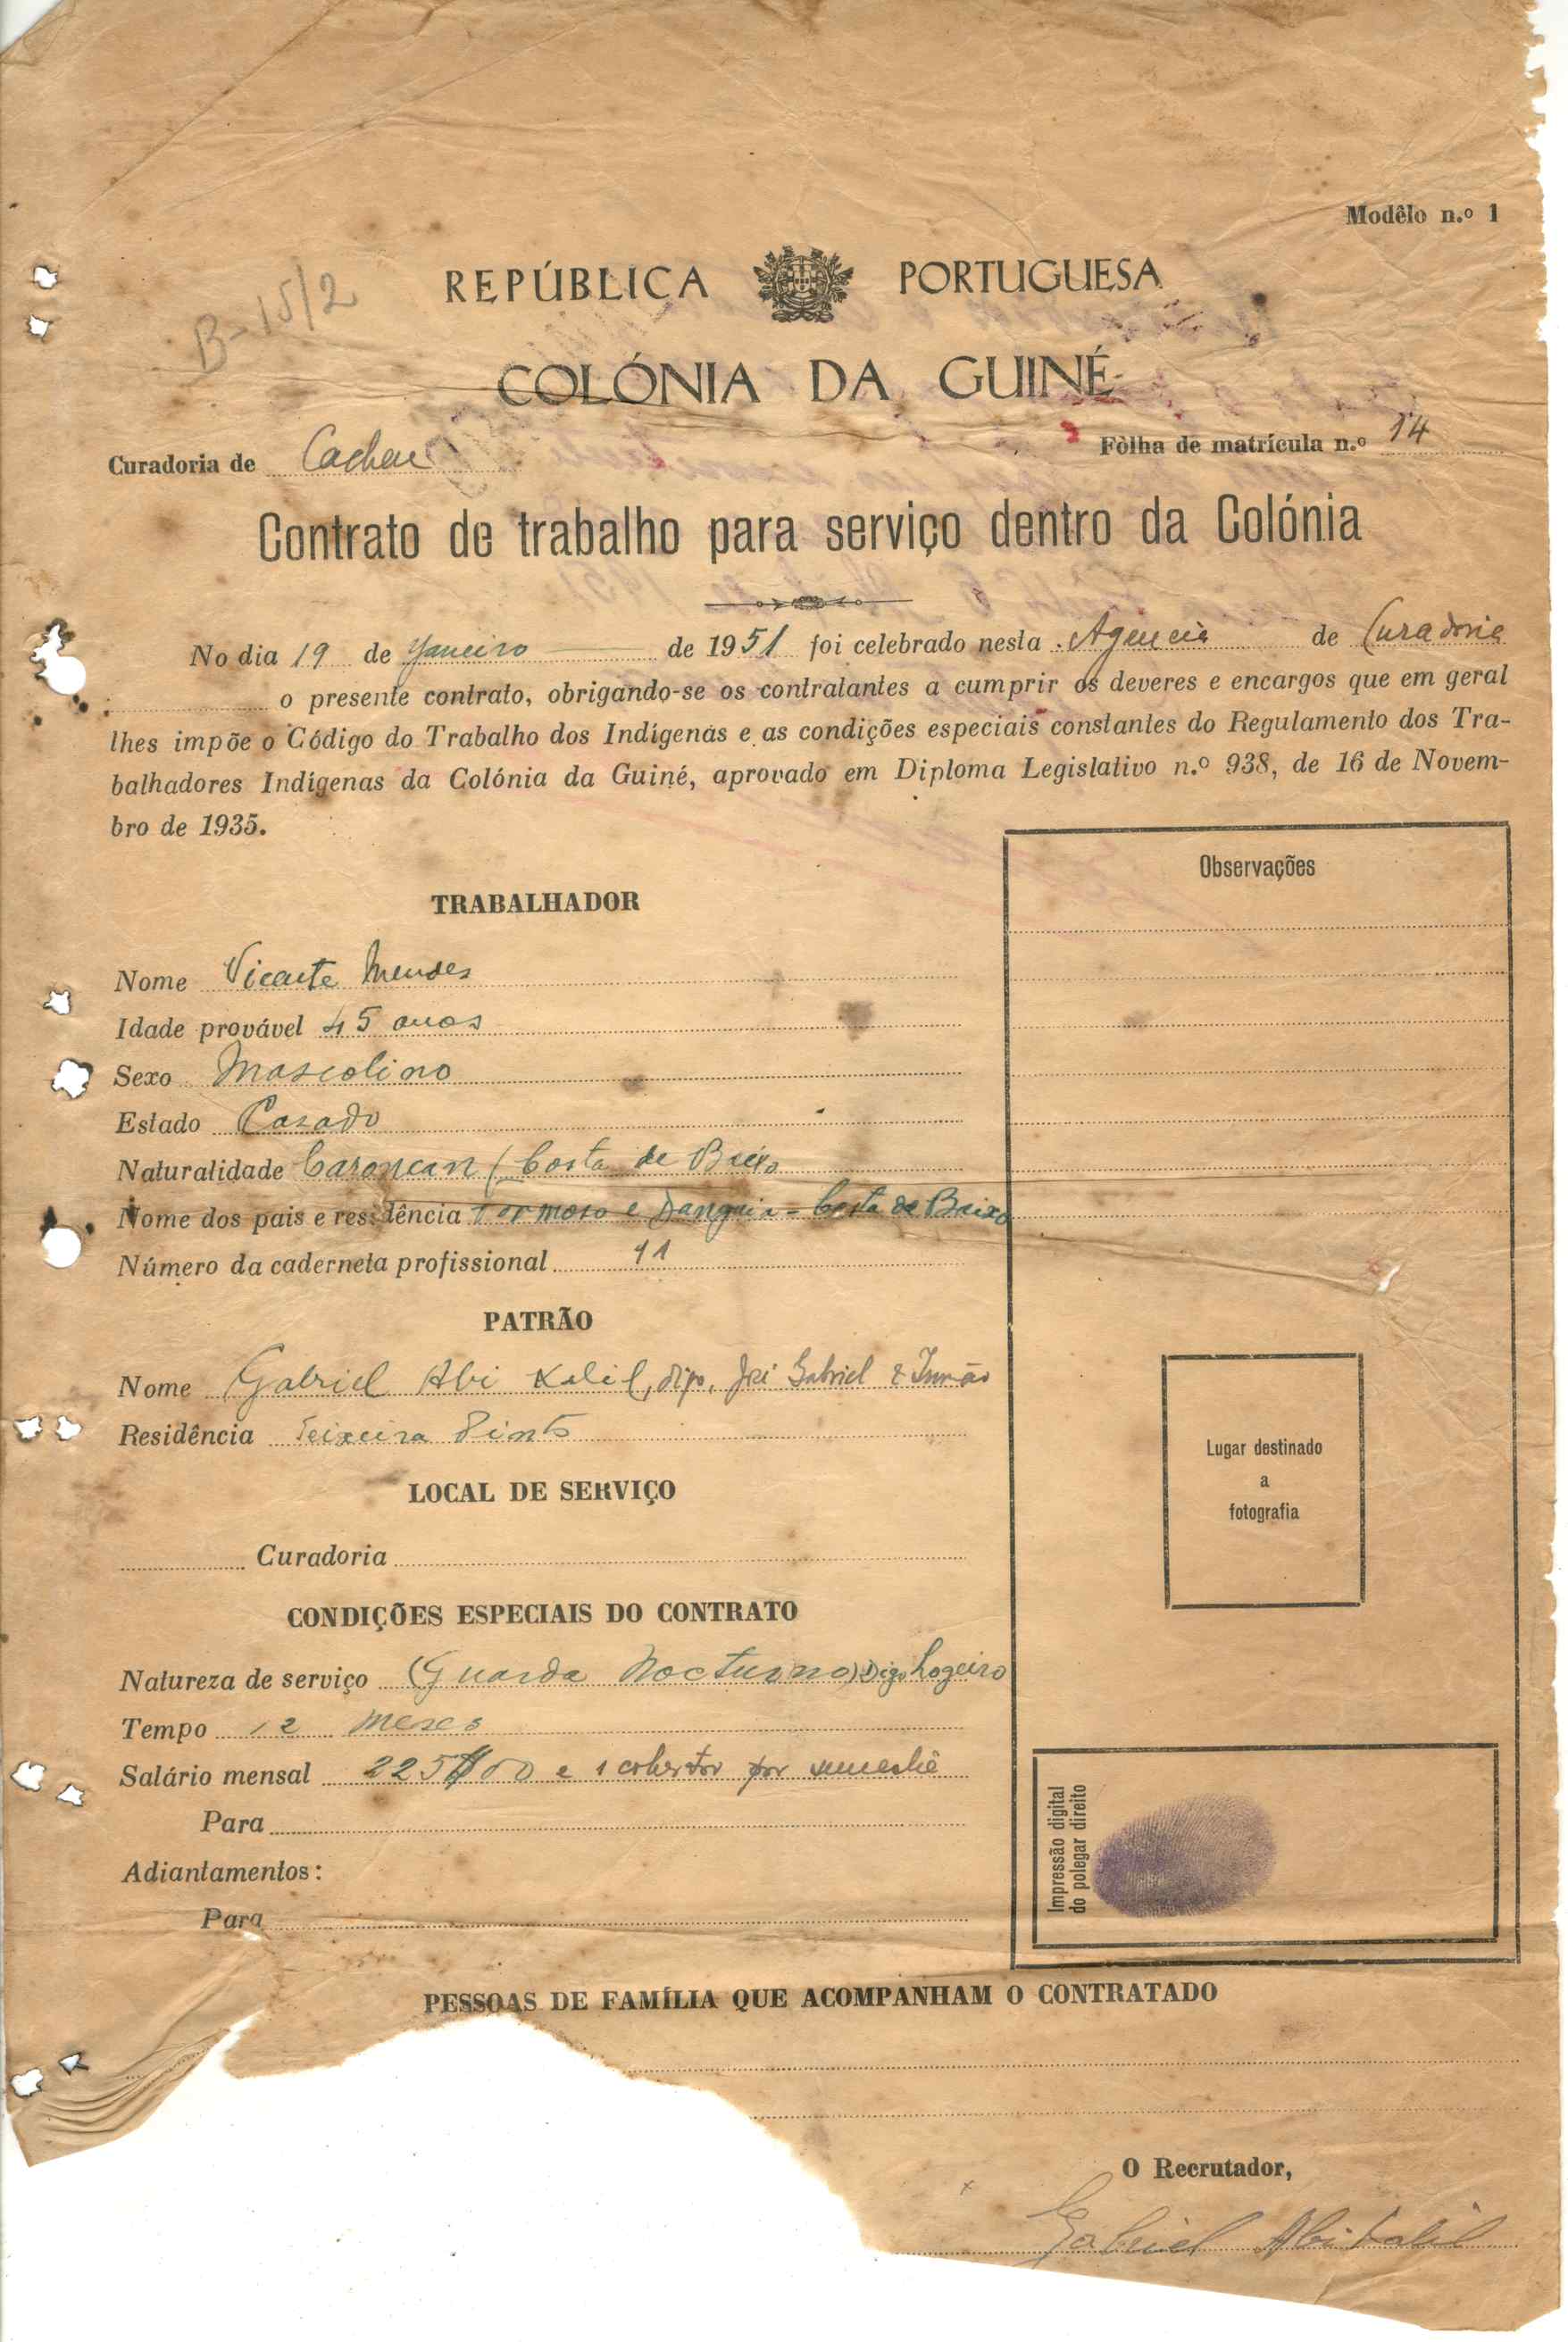 Modêlo n.º 1
B-15/2
REPÚBLICA PORTUGUESA
COLÓNIA DA GUINÉ
Curadoria de Cacheu
Fôlha de matrícula n.º 14
Contrato de trabalho para serviço dentro da Colónia
No dia 19 de Janeiro de 1951 foi celebrado nesta Agencia de Curadoria
o presente contrato, obrigando-se os contratantes a cumprir os deveres e encargos que em geral
lhes impõe o Código do Trabalho dos Indígenas e as condições especiais constantes do Regulamento dos Tra-
balhadores Indígenas da Colónia da Guiné, aprovado em Diploma Legislativo n.º 938, de 16 de Novem-
bro de 1935.
Observações
TRABALHADOR
Nome Vicente Mendes
Idade provável 45 anos
Sexo Mascolino
Estado Casado
Naturalidade Caroncan (Costa de Baixo
Nome dos pais e residência Formoso e Danguia = Costa de Baixo
Número da caderneta profissional 11
PATRÃO
Nome Gabriel Abi Kalil, digo, José Gabriel & Irmão
Residência Teixeira Pinto
Lugar destinado
a
fotografia
LOCAL DE SERVIÇO
Curadoria
CONDIÇÕES ESPECIAIS DO CONTRATO
Natureza de serviço (Guarda Nocturno) Digo Logeiro
Tempo 12 meses
Salário mensal 225$00 e 1 cobertor por
Para
Adiantamentos:
Para
Impressão digital
do polegar direito
PESSOAS DE FAMÍLIA QUE ACOMPANHAM O CONTRATADO
O Recrutador,
Gabriel Abi Kalil